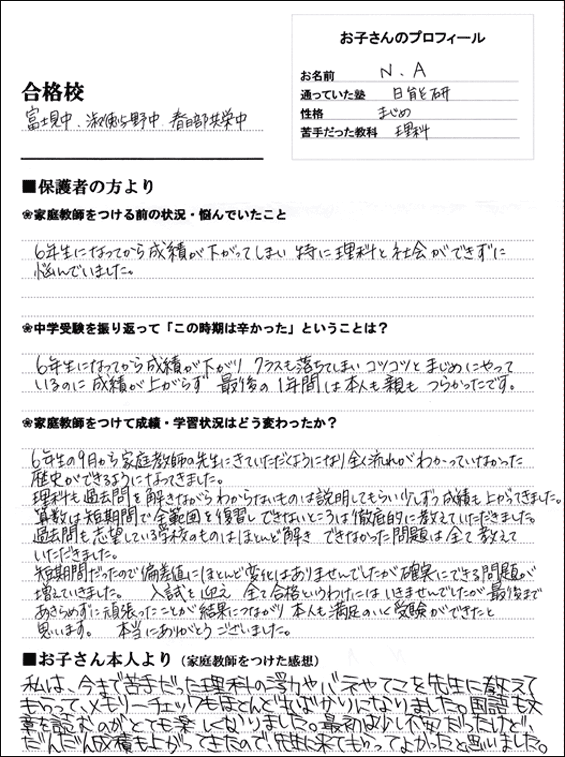 お子さんのプロフィール
お名前 N.A
通っていた塾 日能研
性格 まじめ
苦手だった教科 理科
合格校
富士見中、淑徳与野中 春日部共栄中
■保護者の方より
❀家庭教師をつける前の状況・悩んでいたこと
6年生になってから成績が下がってしまい 特に理科と社会ができずに
悩んでいました。
❀中学受験を振り返って「この時期は辛かった」ということは？
6年生になってから成績が下がり クラスも落ちてしまい コツコツとまじめにやって
いるのに 成績が上がらず 最後の1年間は本人も親も つらかったです。
❀家庭教師をつけて成績・学習状況はどう変わったか？
6年生の9月から家庭教師の先生にきていただくようになり全く流れがわかっていなかった
歴史ができるようになってきました。
理科も過去問を解きながらわからないものは説明してもらい少しずつ成績も上がってきました。
算数は短期間で全範囲を復習し できないところは徹底的に教えていただきました。
過去問も志望している学校のものはほとんど解き できなかった問題は全て教えて
いただきました。
短期間だったので偏差値にほとんど変化はありませんでしたが 確実にできる問題が
増えていきました。 入試を迎え 全て合格というわけには いきませんでしたが 最後まで
あきらめずに頑張ったことが結果につながり 本人も満足のいく受験ができたと
思います。 本当にありがとうございました。
■お子さん本人より（家庭教師をつけた感想）
私は、今まで苦手だった理科の浮力や バネやてこを先生に教えて
もらって、メモリーチェックもほとんど出ばかりになりました。国語も文
章を読むのがとても楽しくなりました。最初は少し不安だったけど、
だんだん成績も上がってきたので、先生に来てもらってよかったと思いました。